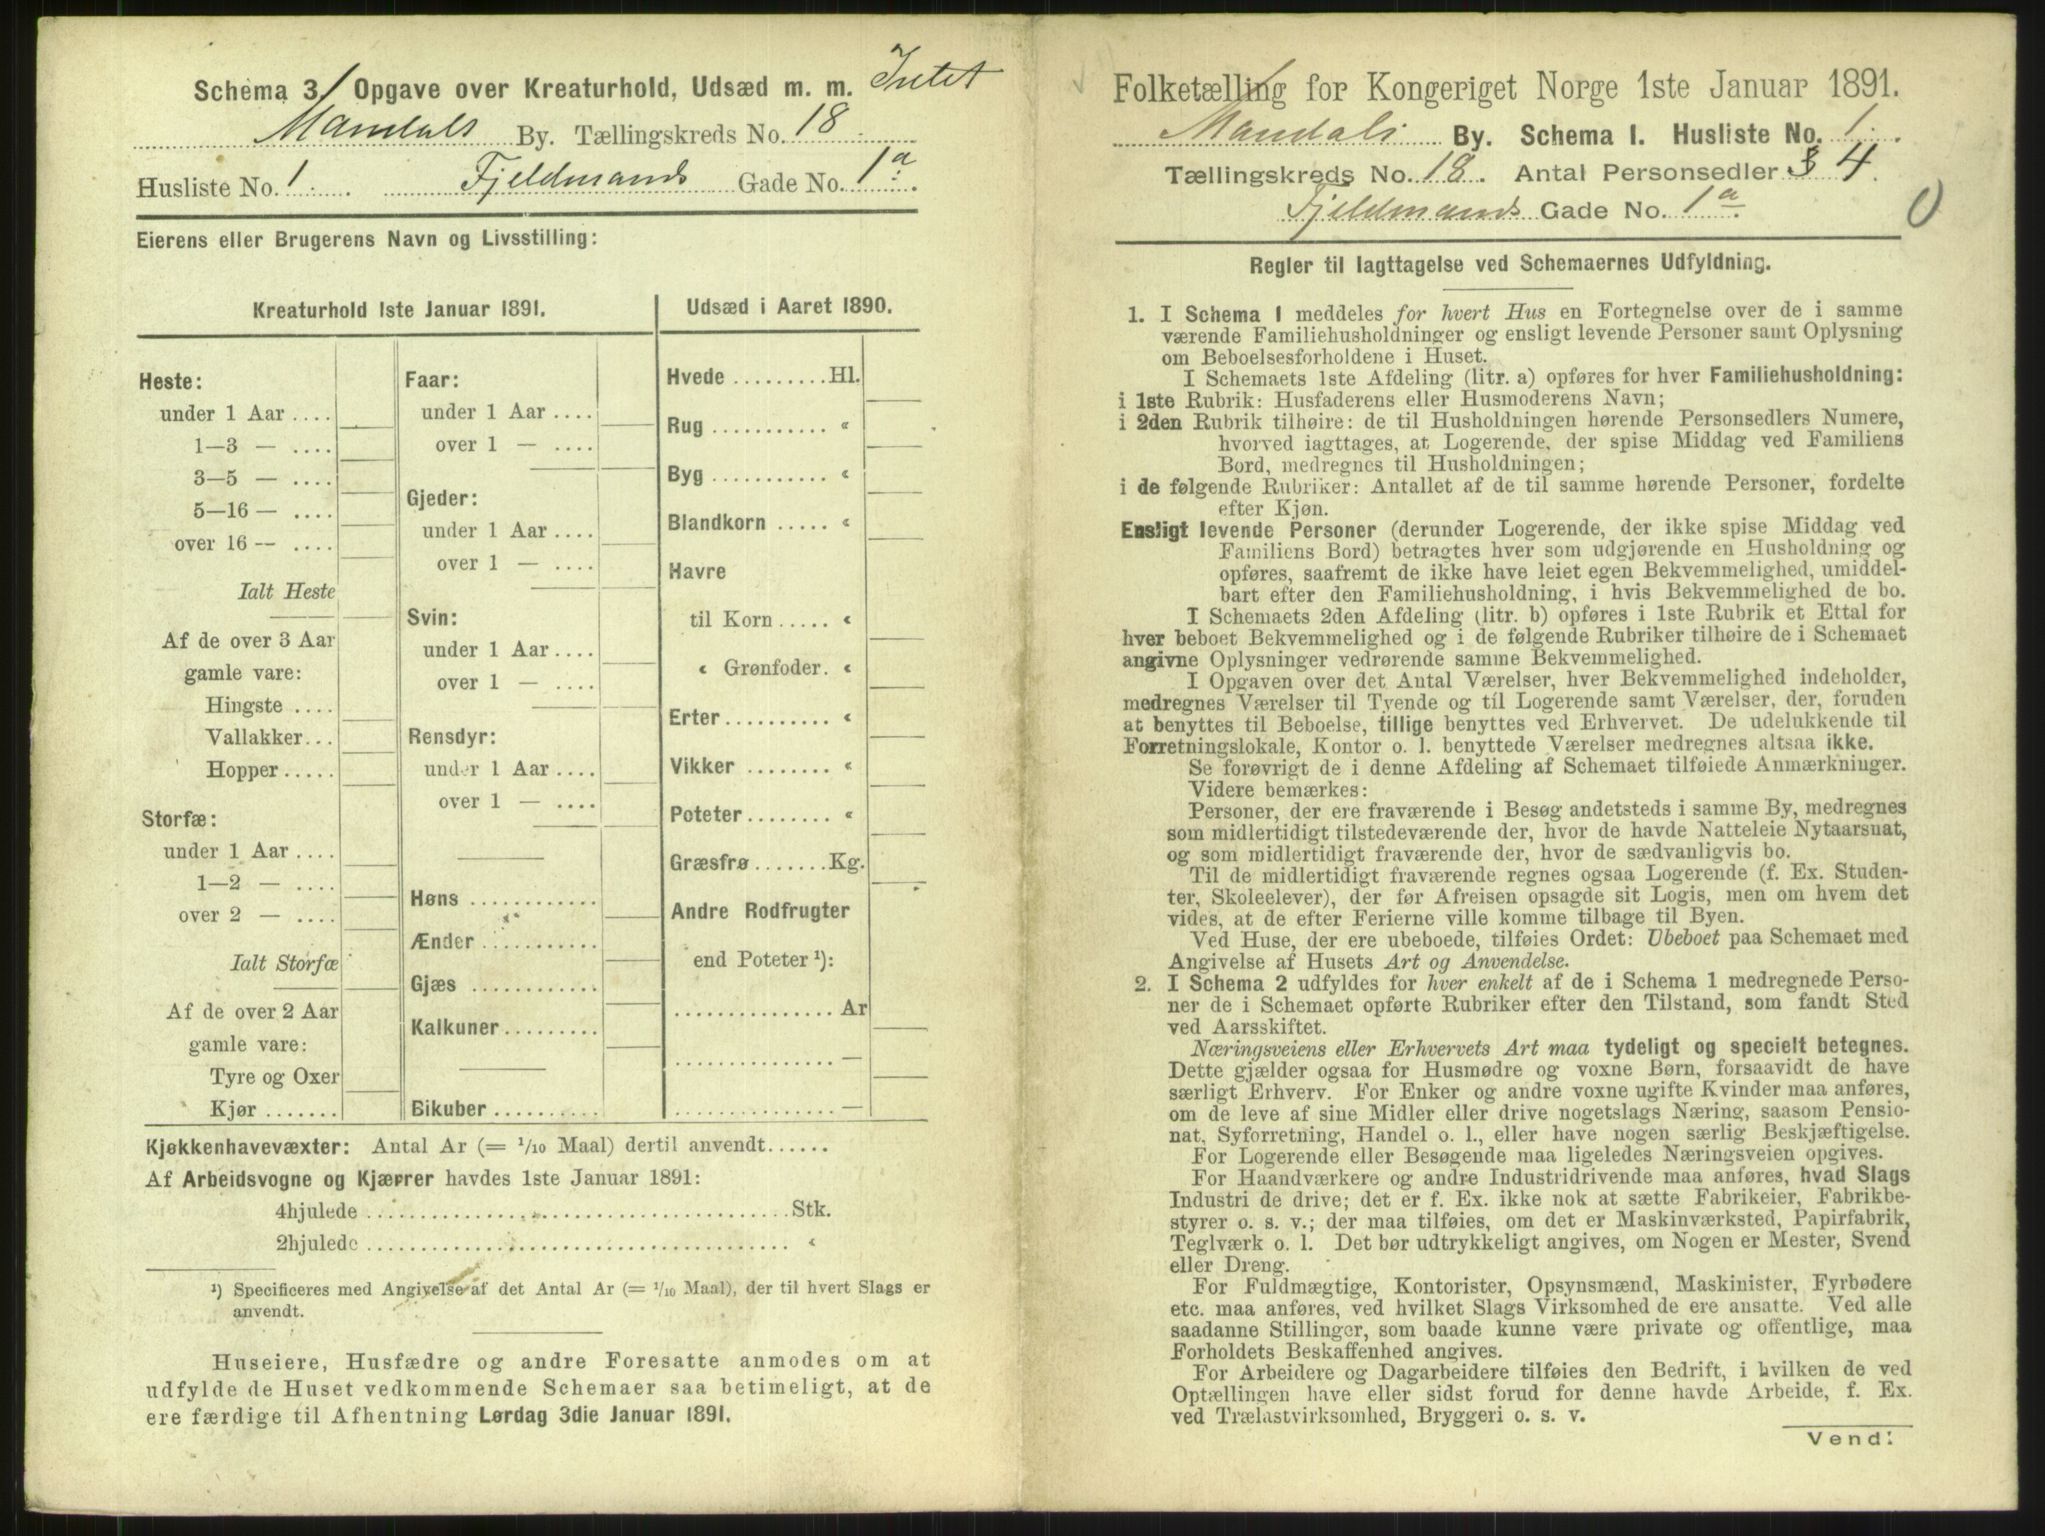 Schema 3. Opgave over Kreaturhold, Udsæd m. m. Intet
Mandals By. Tællingskreds No. 18.
Husliste No. 1. Fjeldmands Gade No. 1a.
Eierens eller Brugerens Navn og Livsstilling:
Kreaturhold 1ste Januar 1891.
Heste:
under 1 Aar ....
1—3 — ....
3—5 — ....
5—16 — ....
over 16 — ....
Ialt Heste
Af de over 3 Aar
gamle vare:
Hingste ....
Vallakker...
Hopper .....
Storfæ:
under 1 Aar ....
1—2 — ....
over 2 — ....
Ialt Storfæ
Af de over 2 Aar
gamle vare:
Tyre og Oxer
Kjør .......
Faar:
under 1 Aar ....
over 1 — ....
Gjeder:
under 1 Aar ....
over 1 — ....
Svin:
under 1 Aar ....
over 1 — ....
Rensdyr:
under 1 Aar ....
over 1 — ....
Høns ............
Ænder ...........
Gjæs ............
Kalkuner.........
Bikuber ..........
Udsæd i Aaret 1890.
Hvede .........Hl.
Rug ........... «
Byg ........... «
Blandkorn ..... «
Havre
til Korn ..... «
« Grønfoder. «
Erter .......... «
Vikker ........ «
Poteter ........ «
Græsfrø .......Kg.
Andre Rodfrugter
end Poteter ¹):
............... Ar
............... —
............... —
Kjøkkenhavevæxter: Antal Ar (= 1/10 Maal) dertil anvendt......
Af Arbeidsvogne og Kjærrer havdes 1ste Januar 1891:
4hjulede ........................................Stk.
2hjulede ........................................ «
¹) Specificeres med Angivelse af det Antal Ar (= 1/10 Maal), der til hvert Slags er
anvendt.
Huseiere, Husfædre og andre Foresatte anmodes om at
udfylde de Huset vedkommende Schemaer saa betimeligt, at de
ere færdige til Afhentning Lørdag 3die Januar 1891.
Folketælling for Kongeriget Norge 1ste Januar 1891.
Mandals By. Schema 1. Husliste No. 1.
Tællingskreds No. 18. Antal Personsedler 3 4.
Fjeldmands Gade No. 1a.
Regler til Iagttagelse ved Schemaernes Udfyldning.
1. I Schema 1 meddeles for hvert Hus en Fortegnelse over de i samme
værende Familiehusholdninger og ensligt levende Personer samt Oplysning
om Beboelsesforholdene i Huset.
I Schemaets 1ste Afdeling (litr. a) opføres for hver Familiehusholdning:
i 1ste Rubrik: Husfaderens eller Husmoderens Navn;
i 2den Rubrik tilhøire: de til Husholdningen hørende Personsedlers Numere,
hvorved iagttages, at Logerende, der spise Middag ved Familiens
Bord, medregnes til Husholdningen;
i de følgende Rubriker: Antallet af de til samme hørende Personer, fordelte
efter Kjøn.
Ensligt levende Personer (derunder Logerende, der ikke spise Middag ved
Familiens Bord) betragtes hver som udgjørende en Husholdning og
opføres, saafremt de ikke have leiet egen Bekvemmelighed, umiddel-
bart efter den Familiehusholdning, i hvis Bekvemmelighed de bo.
I Schemaets 2den Afdeling (litr. b) opføres i 1ste Rubrik et Ettal for
hver beboet Bekvemmelighed og i de følgende Rubriker tilhøire de i Schemaet
angivne Oplysninger vedrørende samme Bekvemmelighed.
I Opgaven over det Antal Værelser, hver Bekvemmelighed indeholder,
medregnes Værelser til Tyende og til Logerende samt Værelser, der, foruden
at benyttes til Beboelse, tillige benyttes ved Erhvervet. De udelukkende til
Forretningslokale, Kontor o. l. benyttede Værelser medregnes altsaa ikke.
Se forøvrigt de i denne Afdeling af Schemaet tilføiede Anmærkninger.
Videre bemærkes:
Personer, der ere fraværende i Besøg andetsteds i samme By, medregnes
som midlertidigt tilstedeværende der, hvor de havde Natteleie Nytaarsnat,
og som midlertidigt fraværende der, hvor de sædvanligvis bo.
Til de midlertidigt fraværende regnes ogsaa Logerende (f. Ex. Studen-
ter, Skoleelever), der før Afreisen opsagde sit Logis, men om hvem det
vides, at de efter Ferierne ville komme tilbage til Byen.
Ved Huse, der ere ubeboede, tilføies Ordet: Ubeboet paa Schemaet med
Angivelse af Husets Art og Anvendelse.
2. I Schema 2 udfyldes for hver enkelt af de i Schema 1 medregnede Perso-
ner de i Schemaet opførte Rubriker efter den Tilstand, som fandt Sted
ved Aarsskiftet.
Næringsveiens eller Erhvervets Art maa tydeligt og specielt betegnes.
Dette gjælder ogsaa for Husmødre og voxne Børn, forsaavidt de have
særligt Erhverv. For Enker og andre voxne ugifte Kvinder maa anføres,
om de leve af sine Midler eller drive nogetslags Næring, saasom Pensio-
nat, Syforretning, Handel o. l., eller have nogen særlig Beskjæftigelse.
For Logerende eller Besøgende maa ligeledes Næringsveien opgives.
For Haandværkere og andre Industridrivende maa anføres, hvad Slags
Industri de drive; det er f. Ex. ikke nok at sætte Fabrikeier, Fabrikbe-
styrer o. s. v.; der maa tilføies, om det er Maskinværksted, Papirfabrik,
Teglværk o. l. Det bør udtrykkeligt angives, om Nogen er Mester, Svend
eller Dreng.
For Fuldmægtige, Kontorister, Opsynsmænd, Maskinister, Fyrbødere
etc. maa anføres, ved hvilket Slags Virksomhed de ere ansatte. Ved alle
saadanne Stillinger, som baade kunne være private og offentlige, maa
Forholdets Beskaffenhed angives.
For Arbeidere og Dagarbeidere tilføies den Bedrift, i hvilken de ved
Optællingen have eller sidst forud for denne havde Arbeide, f. Ex.
ved Trælastvirksomhed, Bryggeri o. s. v.
Vend!